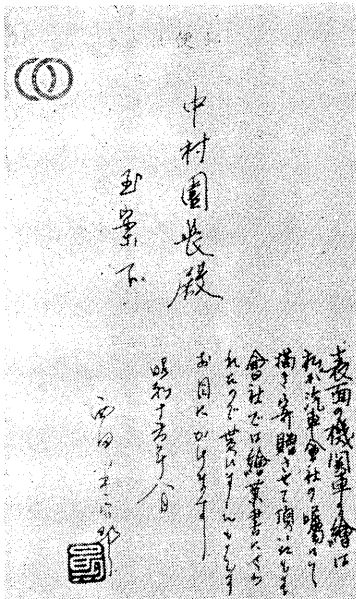 中村園長殿
玉案下
表面の機関車の繪は
私が汽車會社の嘱により
描き寄贈させて頂いたもの
會社では繪葉書にさ
れたので貰ひました
お目にかけます
昭和十六年八月
西田